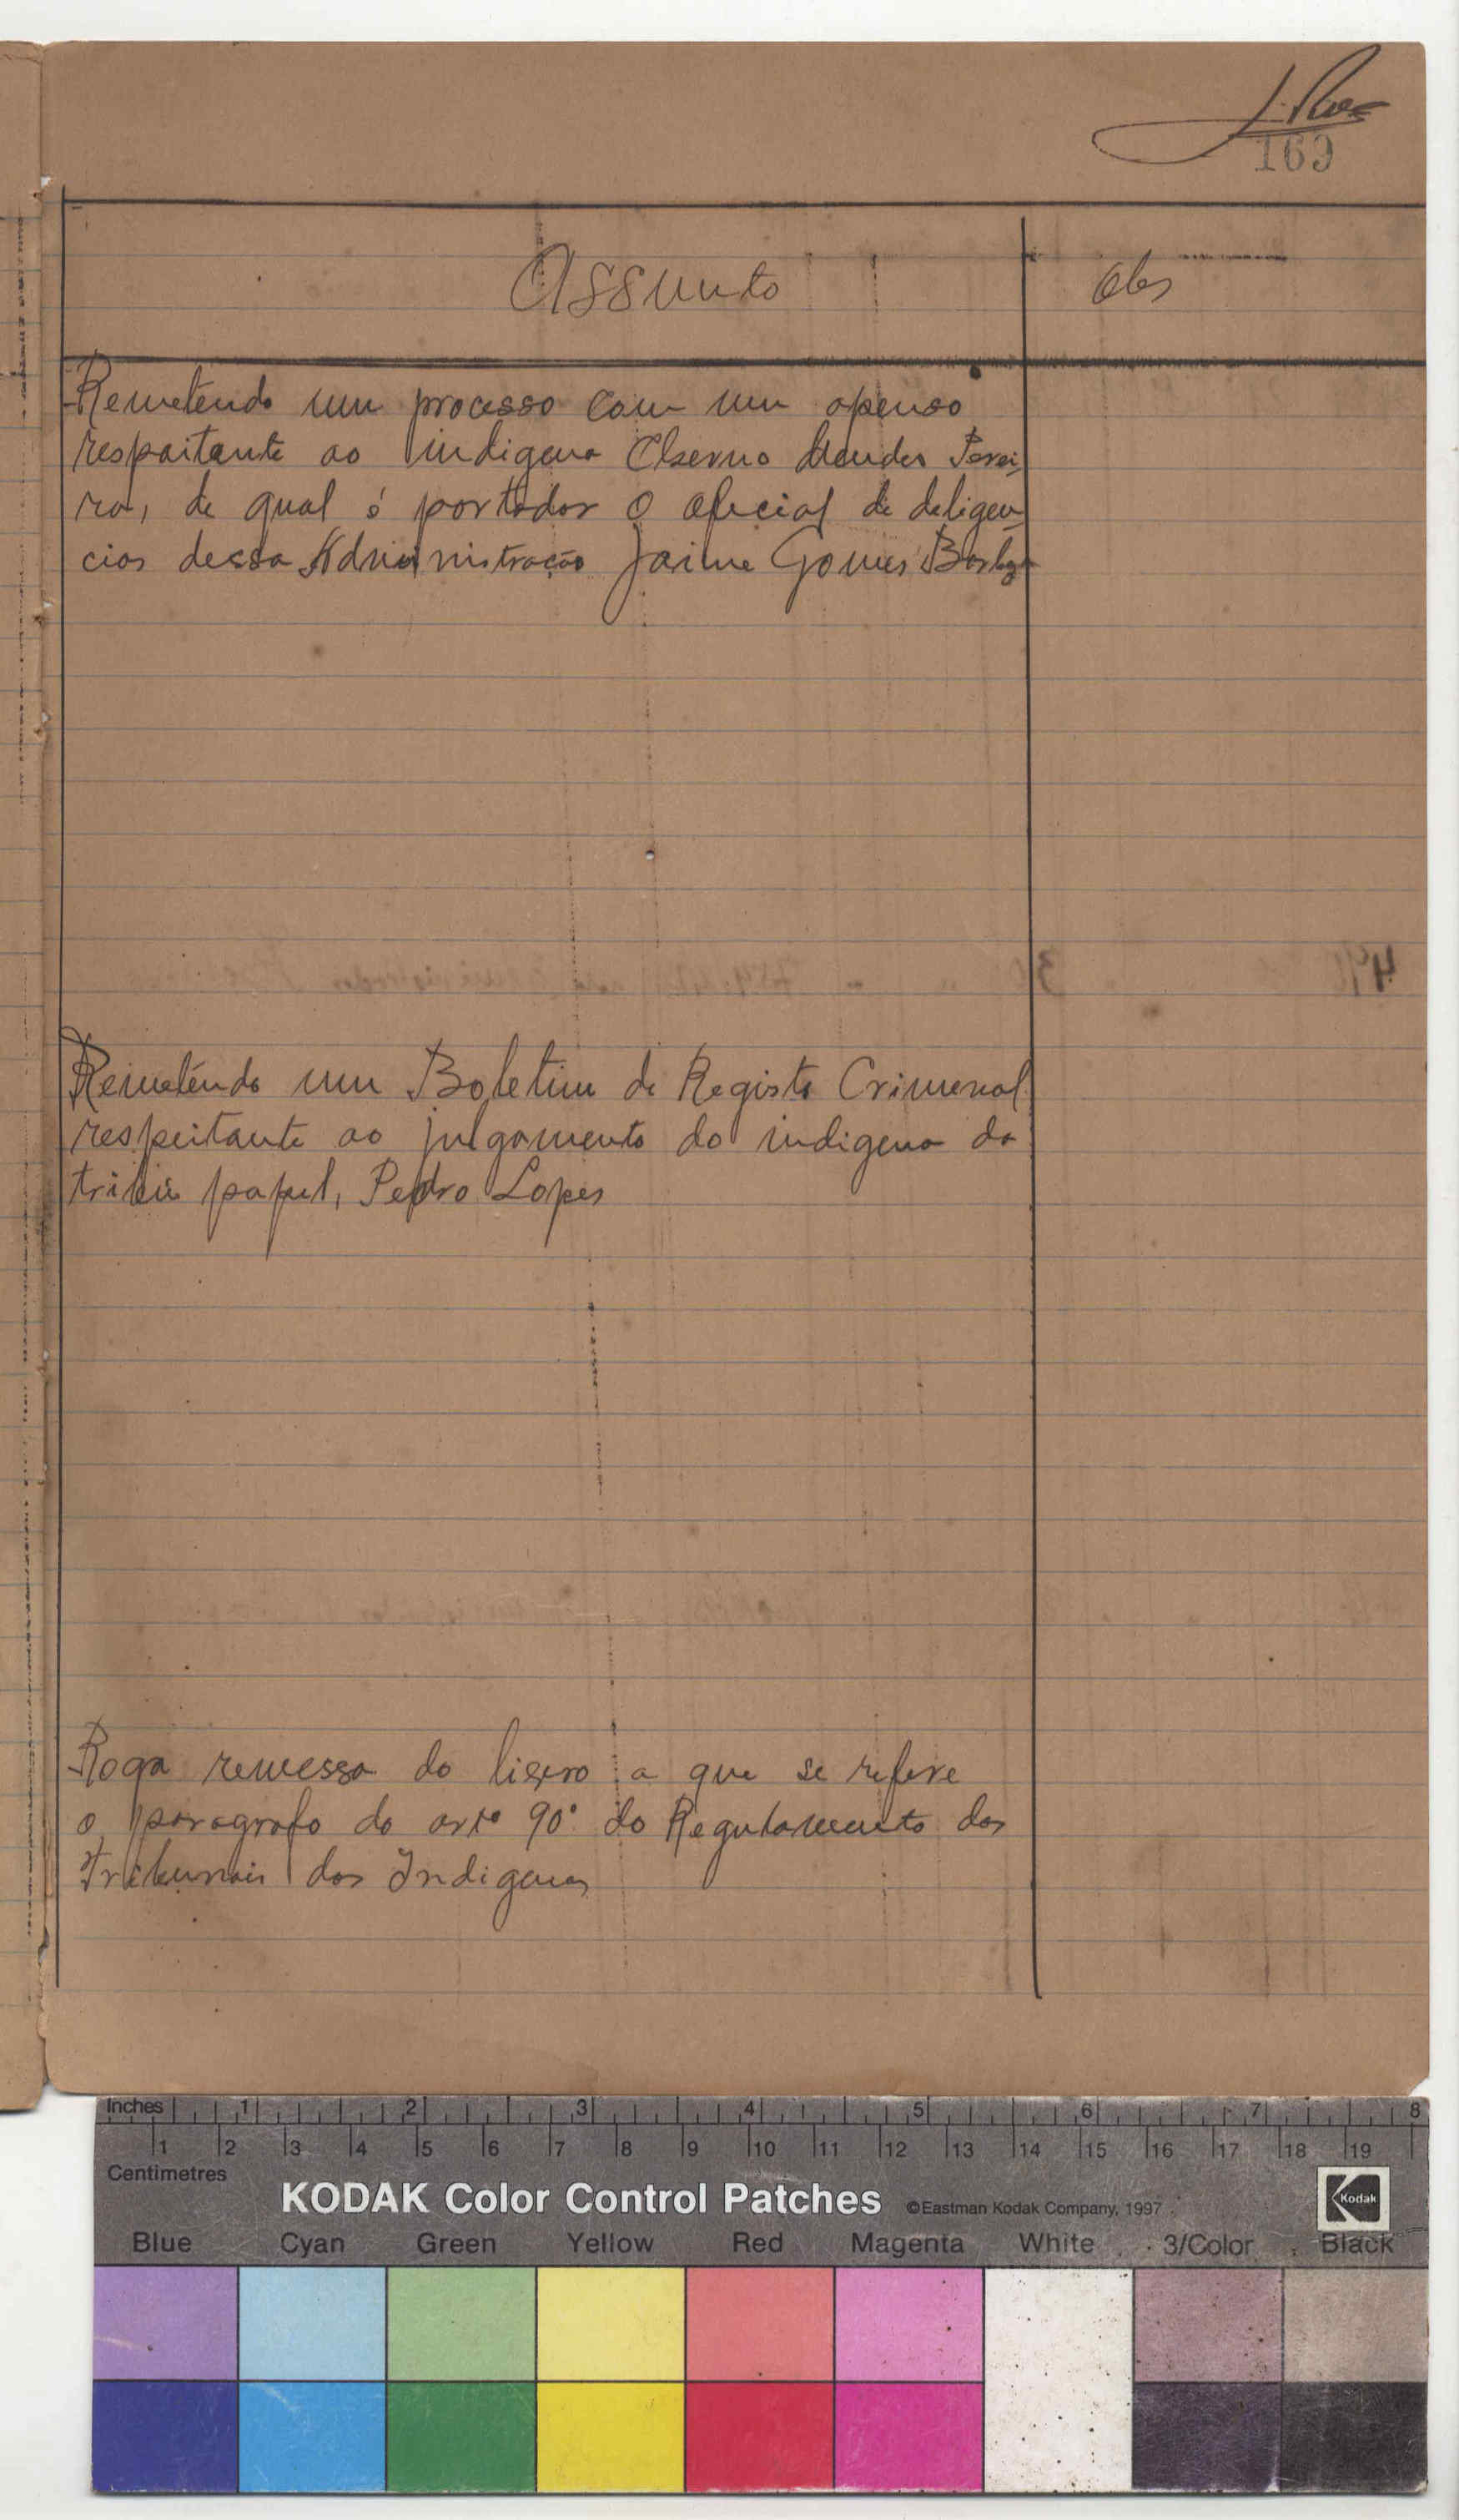 169
Assunto
Obs
Remetendo um processo com um apenso
respeitante ao indigena Mendes Perei-
ra, de qual é portador o oficial de deligen-
cias dessa Administração Jaime Gomes Barbosa
Remeténdo um Boletim de Registo Crimenal
respeitante ao julgamento do indigena da
tribu papel, Pedro Lopes
Roga remessa do livro a que se refere
o paragrafo do artº 90º do Regulamento dos
Tribunais dos Indigenas
Inches 1 2 3 4 5 6 7 8
1 2 3 4 5 6 7 8 9 10 11 12 13 14 15 16 17 18 19
Centimetres
KODAK Color Control Patches ©Eastman Kodak Company, 1997 Kodak
Blue Cyan Green Yellow Red Magenta White 3/Color Black